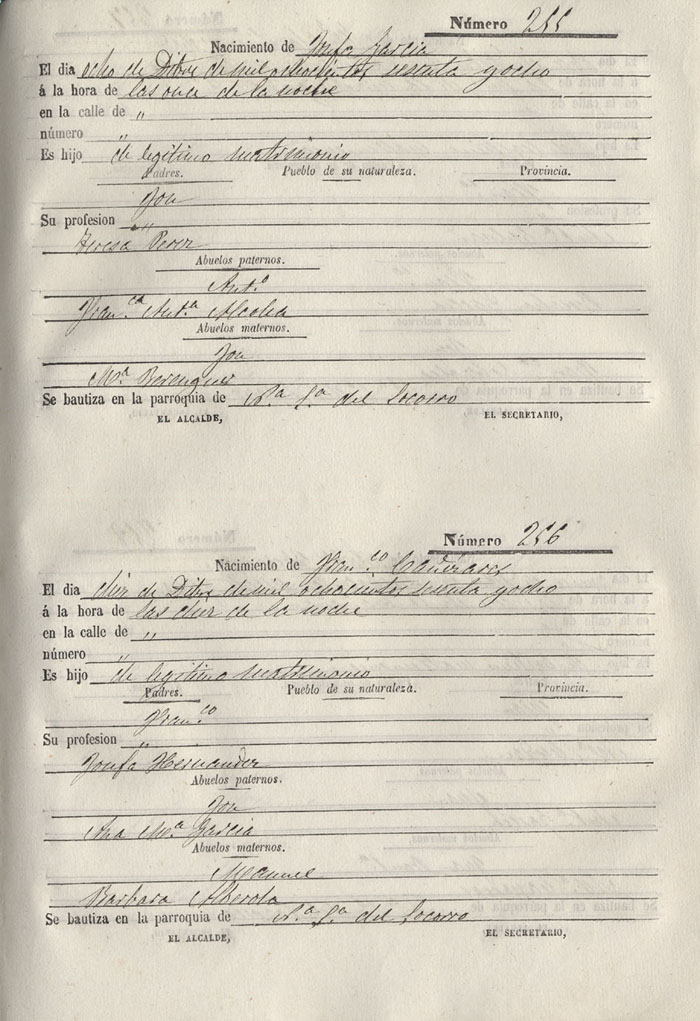 Número 255
Nacimiento de Josefa Garcia
El dia ocho de Dibre de mil ochocientos sesenta y ocho
á la hora de las once de la noche
en la calle de „
número „
Es hijo de legitimo matrimonio
Padres. Pueblo de su naturaleza. Provincia.
José
Su profesion „
Teresa Perez
Abuelos paternos.
Ant.º
Fran.ca Ant.a
Abuelos maternos.
José
M.a Berenguer
Se bautiza en la parroquia de N.a S.a del Socorro
EL ALCALDE, EL SECRETARIO,
Número 256
Nacimiento de Fran.co Cañizares
El dia diez de Dibre de mil ochocientos sesenta y ocho
á la hora de las diez de la noche
en la calle de „
número „
Es hijo de legitimo matrimonio
Padres. Pueblo de su naturaleza. Provincia.
Fran.co
Su profesion „
Josefa Hernandez
Abuelos paternos.
José
Ana M.a Garcia
Abuelos maternos.
Manuel
Barbara Alberola
Se bautiza en la parroquia de N.a S.a del Socorro
EL ALCALDE, EL SECRETARIO,